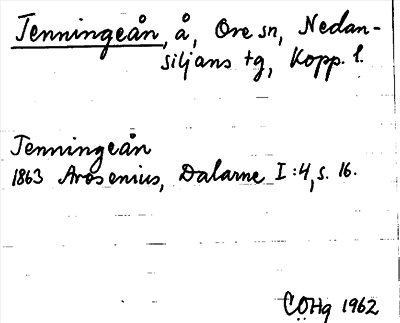 Tenningeån, å, Ore sn, Nedan-
siljans tg, Kopp. l.
Tenningeån
1863 Arosenius, Dalarne I:4, s. 16.
COHg 1962